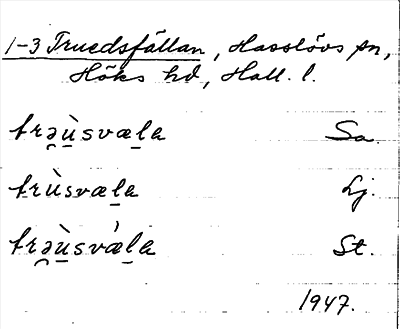 1-3 Truedsfällan, Hasslövs sn,
Höks hd, Hall. l.
trə̯ùsvæla Sa.
trùsvæla Lj.
trə̯ùsvǽla St.
1947.